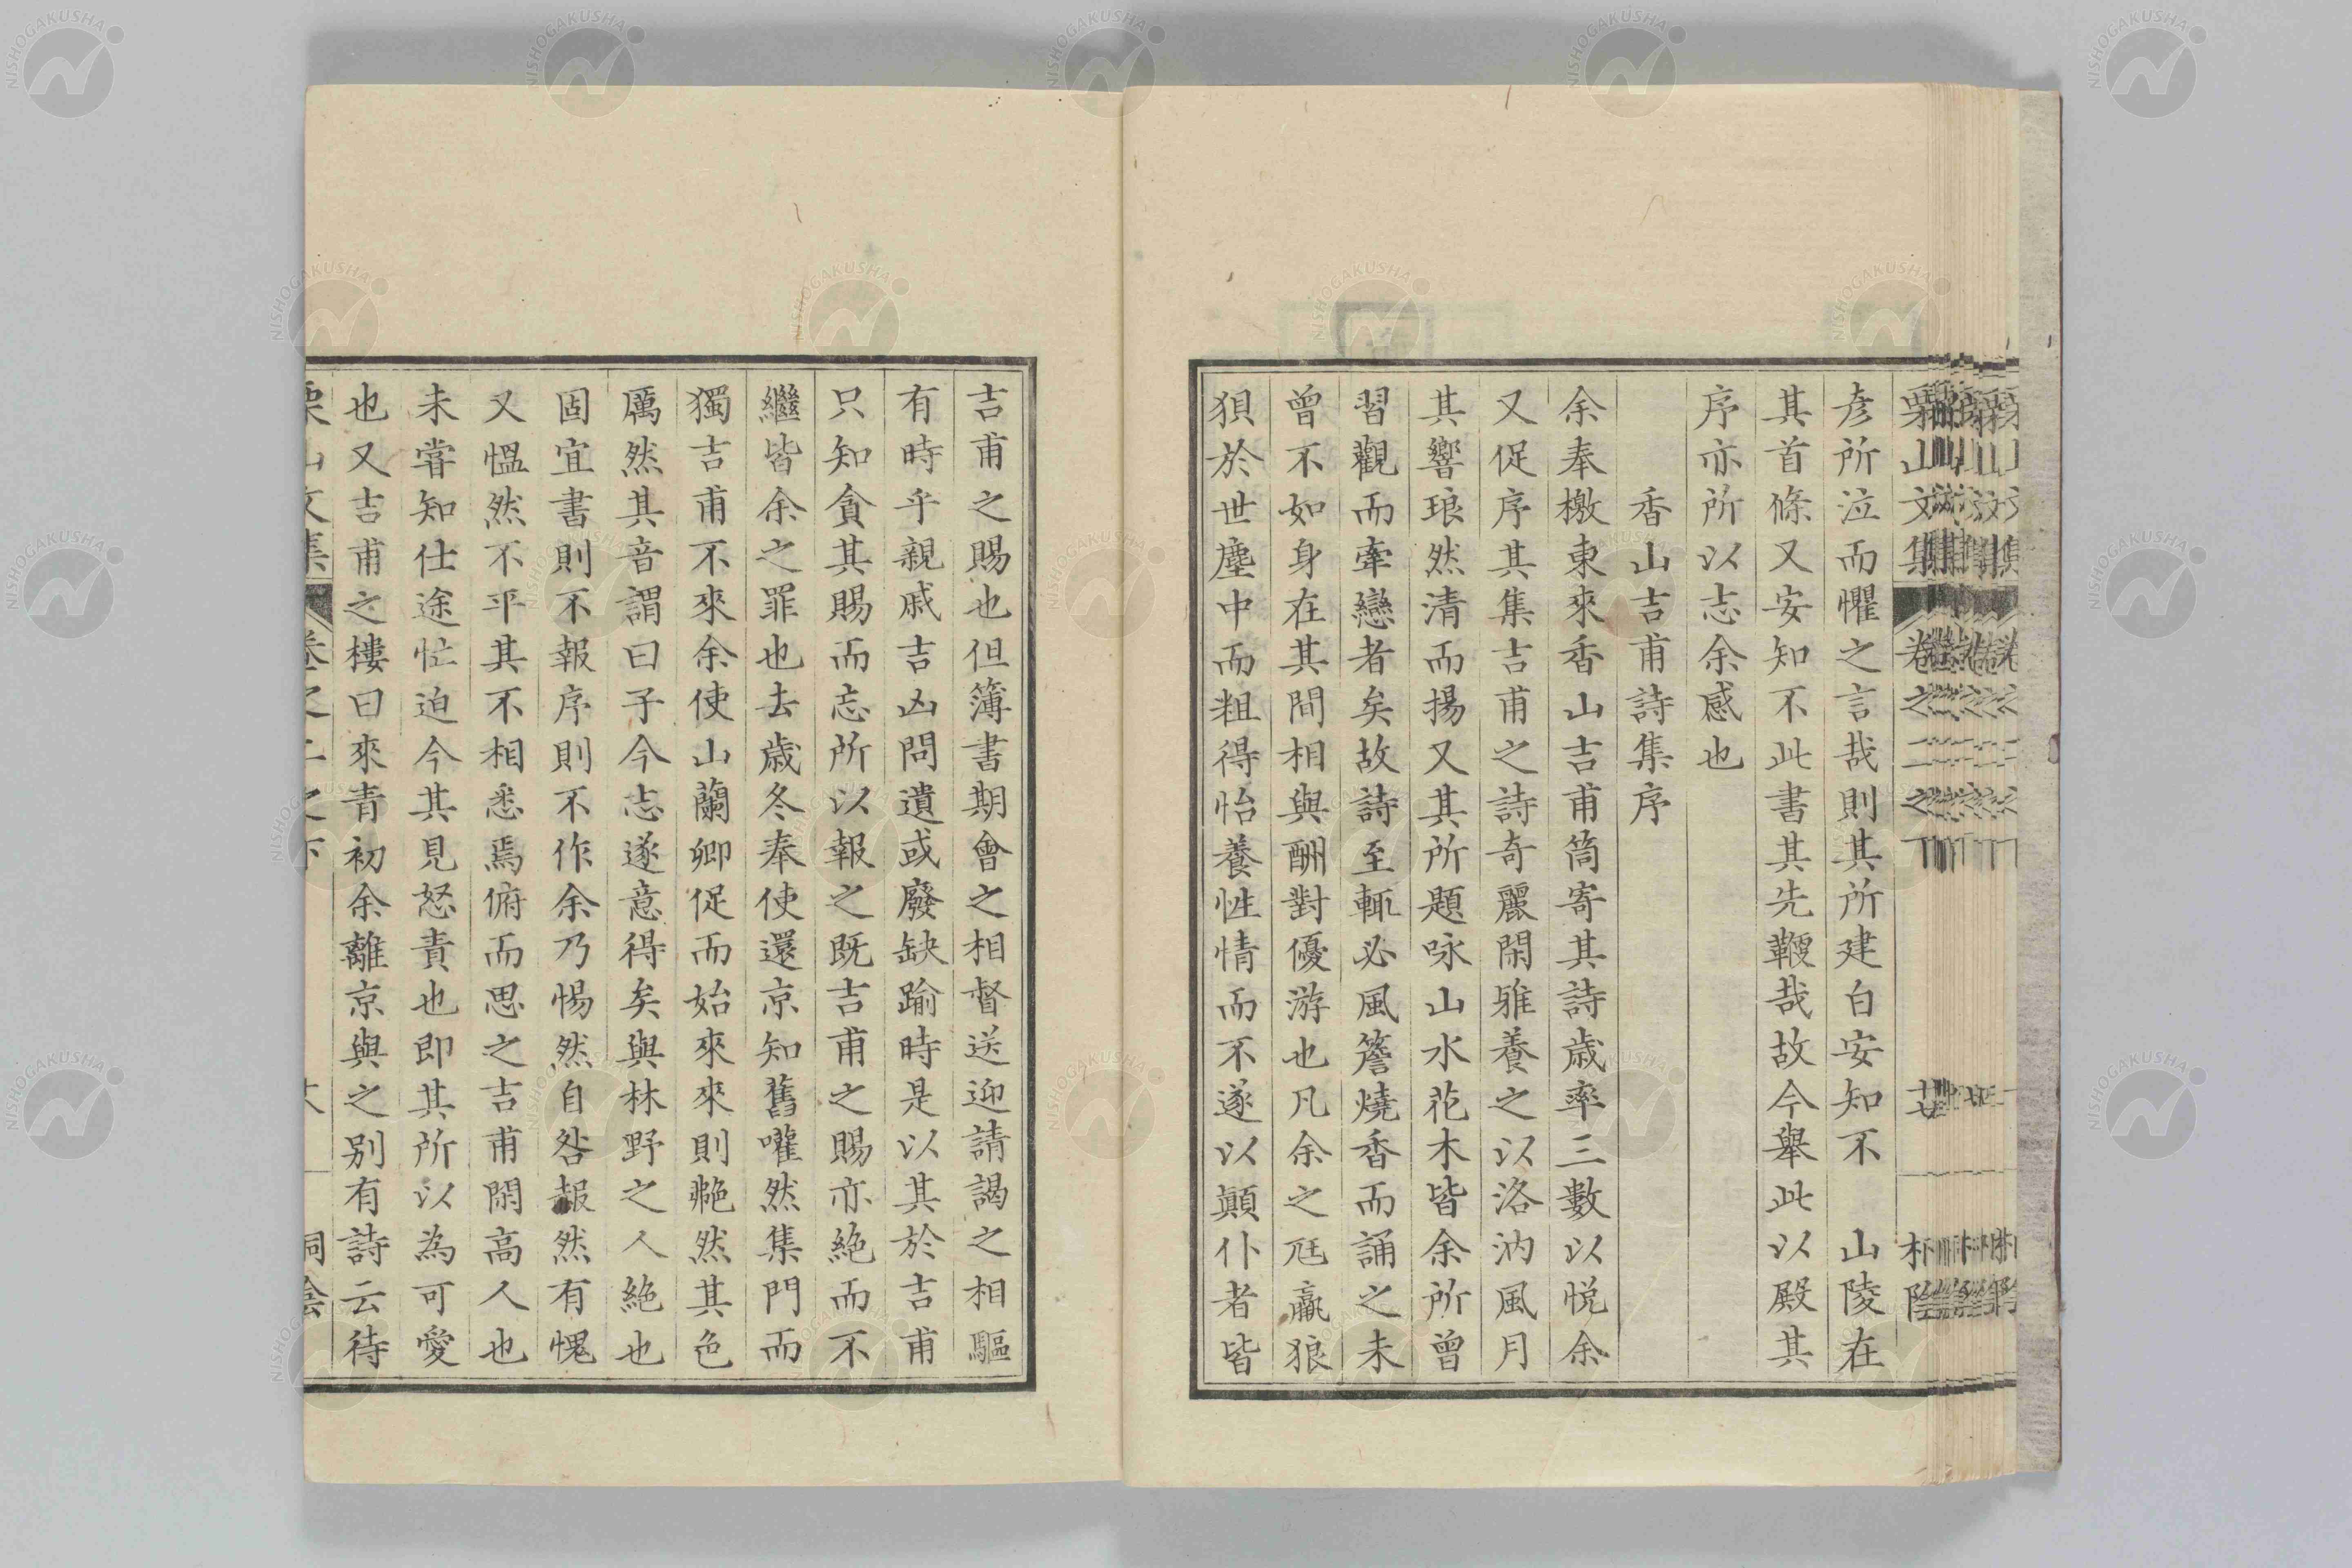 彦所泣而懼之言哉則其所建白安知不　山陵在
其首條又安知不此書其先鞭哉故今舉此以殿其
序亦所以志余感也
香山吉甫詩集序
余奉檄東來香山吉甫筒寄其詩歲率三數以悦余
又促序其集吉甫之詩奇麗閑雅養之以洛汭風月
其響琅然清而揚又其所題咏山水花木皆余所曾
習觀而牽戀者矣故詩至輒必風簷燒香而誦之未
曾不如身在其間相與酬對優游也凡余之尫羸狼
狽於世塵中而粗得怡養性情而不遂以顛仆者皆
吉甫之賜也但簿書期會之相督送迎請謁之相驅
有時乎親戚吉凶問遺或廢缺踰時是以其於吉甫
只知貪其賜而忘所以報之既吉甫之賜亦絶而不
繼皆余之罪也去歲冬奉使還京知舊嚾然集門而
獨吉甫不來余使山蘭卿促而始來來則艴然其色
厲然其音謂曰子今志遂意得矣與林野之人絶也
固宜書則不報序則不作余乃惕然自咎赧然有愧
又慍然不平其不相悉焉俯而思之吉甫閑高人也
未嘗知仕途忙迫今其見怒責也即其所以為可愛
也又吉甫之樓曰來青初余離京與之别有詩云待
栗山文集 卷之二之下
NISHOGAKUSHA